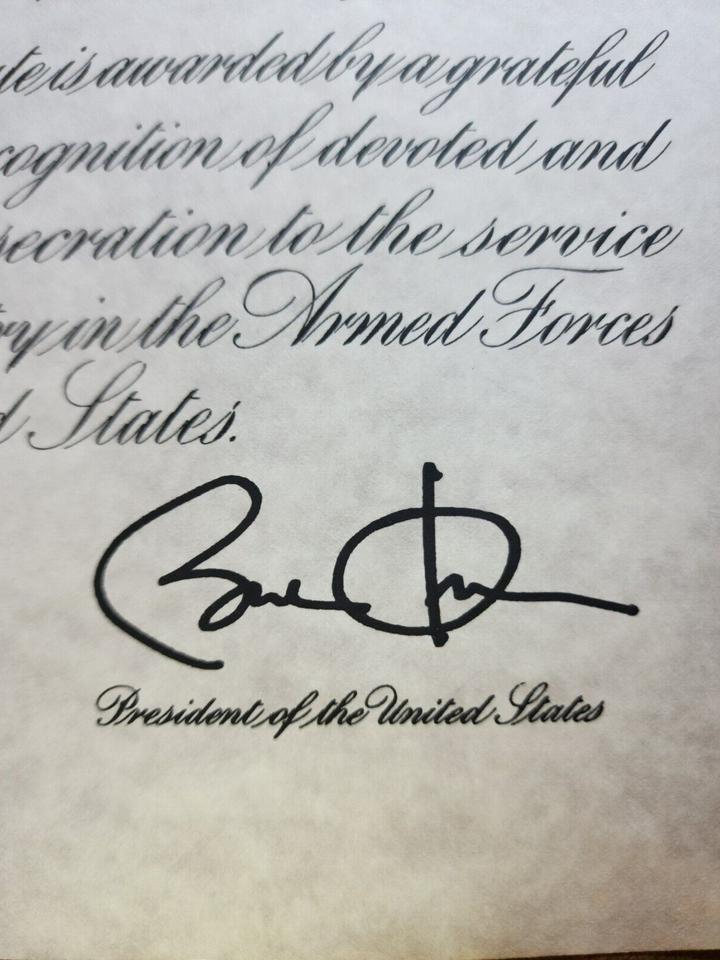 te is awarded by a grateful
cognition of devoted and
secration to the service
ry in the Armed Forces
d States.
President of the United States